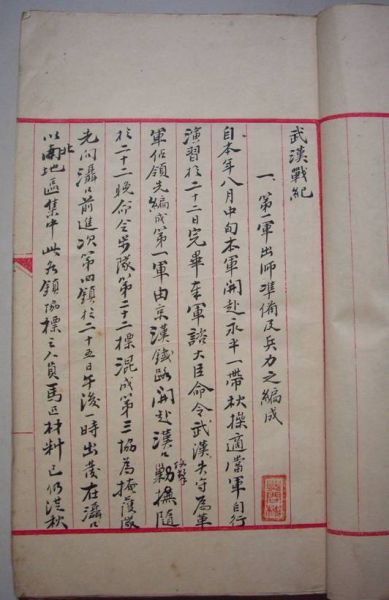 武漢戰紀
一、第一軍出師準備及兵力之編成
自本年八月中旬本軍開赴永平一帶秋操適當軍自行
演習於二十二日完畢奉軍諮大臣命令武漢失守為革
軍佔領先編成第一軍由京漢鐵路開赴漢口勦撫隨
於二十二晚命令步隊第二十二標混成第三協為掩護隊
先向灄口前進次第四鎮於二十五日午後一時出發在灄口
以北地區集中此為鎮協標之人員馬匹材料已仍從秋